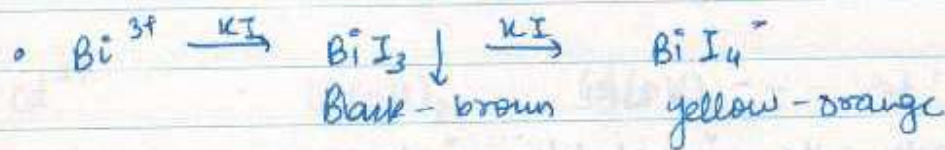 • Bi³⁺ —KI→ BiI₃ ↓ —KI→ BiI₄⁻
Black-brown yellow-orange